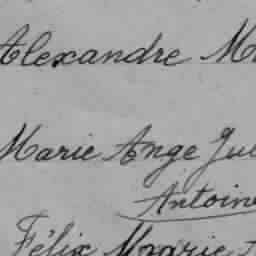 Alexandre
Marie Ange
Antoine
Félix Marie